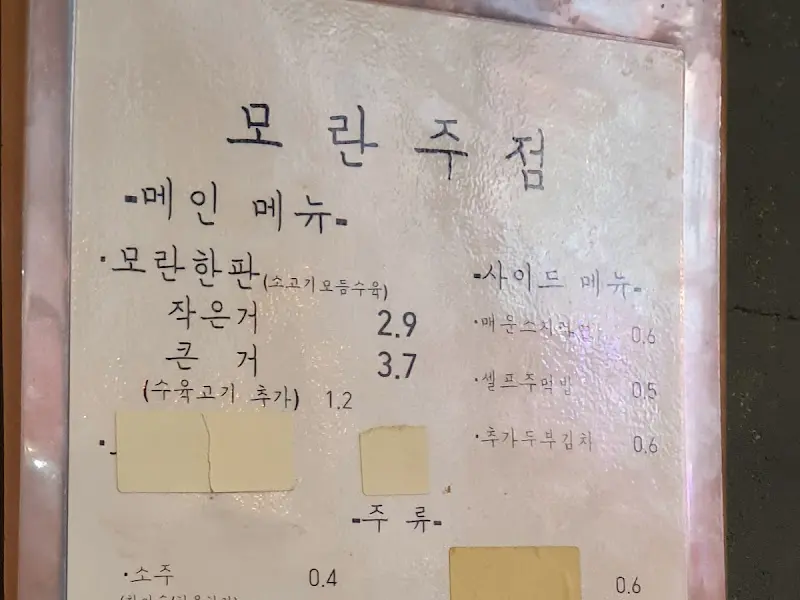 모란주점
-메인 메뉴-
·모란한판(소고기모듬수육)
작은거 2.9
큰 거 3.7
(수육고기 추가) 1.2
-사이드 메뉴-
·매운스지라면 0.6
·셀프주먹밥 0.5
·추가두부김치 0.6
-주 류-
·소주 0.4
0.6